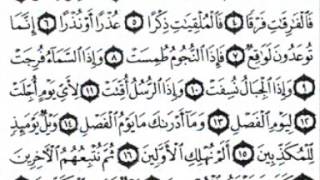 فَالْفَٰرِقَٰتِ فَرْقًا ٤ فَالْمُلْقِيَٰتِ ذِكْرًا ٥ عُذْرًا أَوْ نُذْرًا ٦ إِنَّمَا
تُوعَدُونَ لَوَٰقِعٌ ٧ فَإِذَا النُّجُومُ طُمِسَتْ ٨ وَإِذَا السَّمَآءُ فُرِجَتْ
٩ وَإِذَا الْجِبَالُ نُسِفَتْ ١٠ وَإِذَا الرُّسُلُ أُقِّتَتْ ١١ لِأَيِّ يَوْمٍ أُجِّلَتْ
١٢ لِيَوْمِ الْفَصْلِ ١٣ وَمَآ أَدْرَىٰكَ مَا يَوْمُ الْفَصْلِ ١٤ وَيْلٌ يَوْمَئِذٍ
لِّلْمُكَذِّبِينَ ١٥ أَلَمْ نُهْلِكِ الْأَوَّلِينَ ١٦ ثُمَّ نُتْبِعُهُمُ الْآخِرِينَ